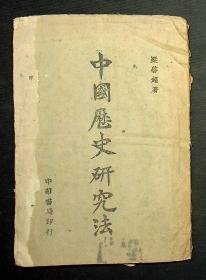 梁啓超著
中國歷史研究法
中華書局印行